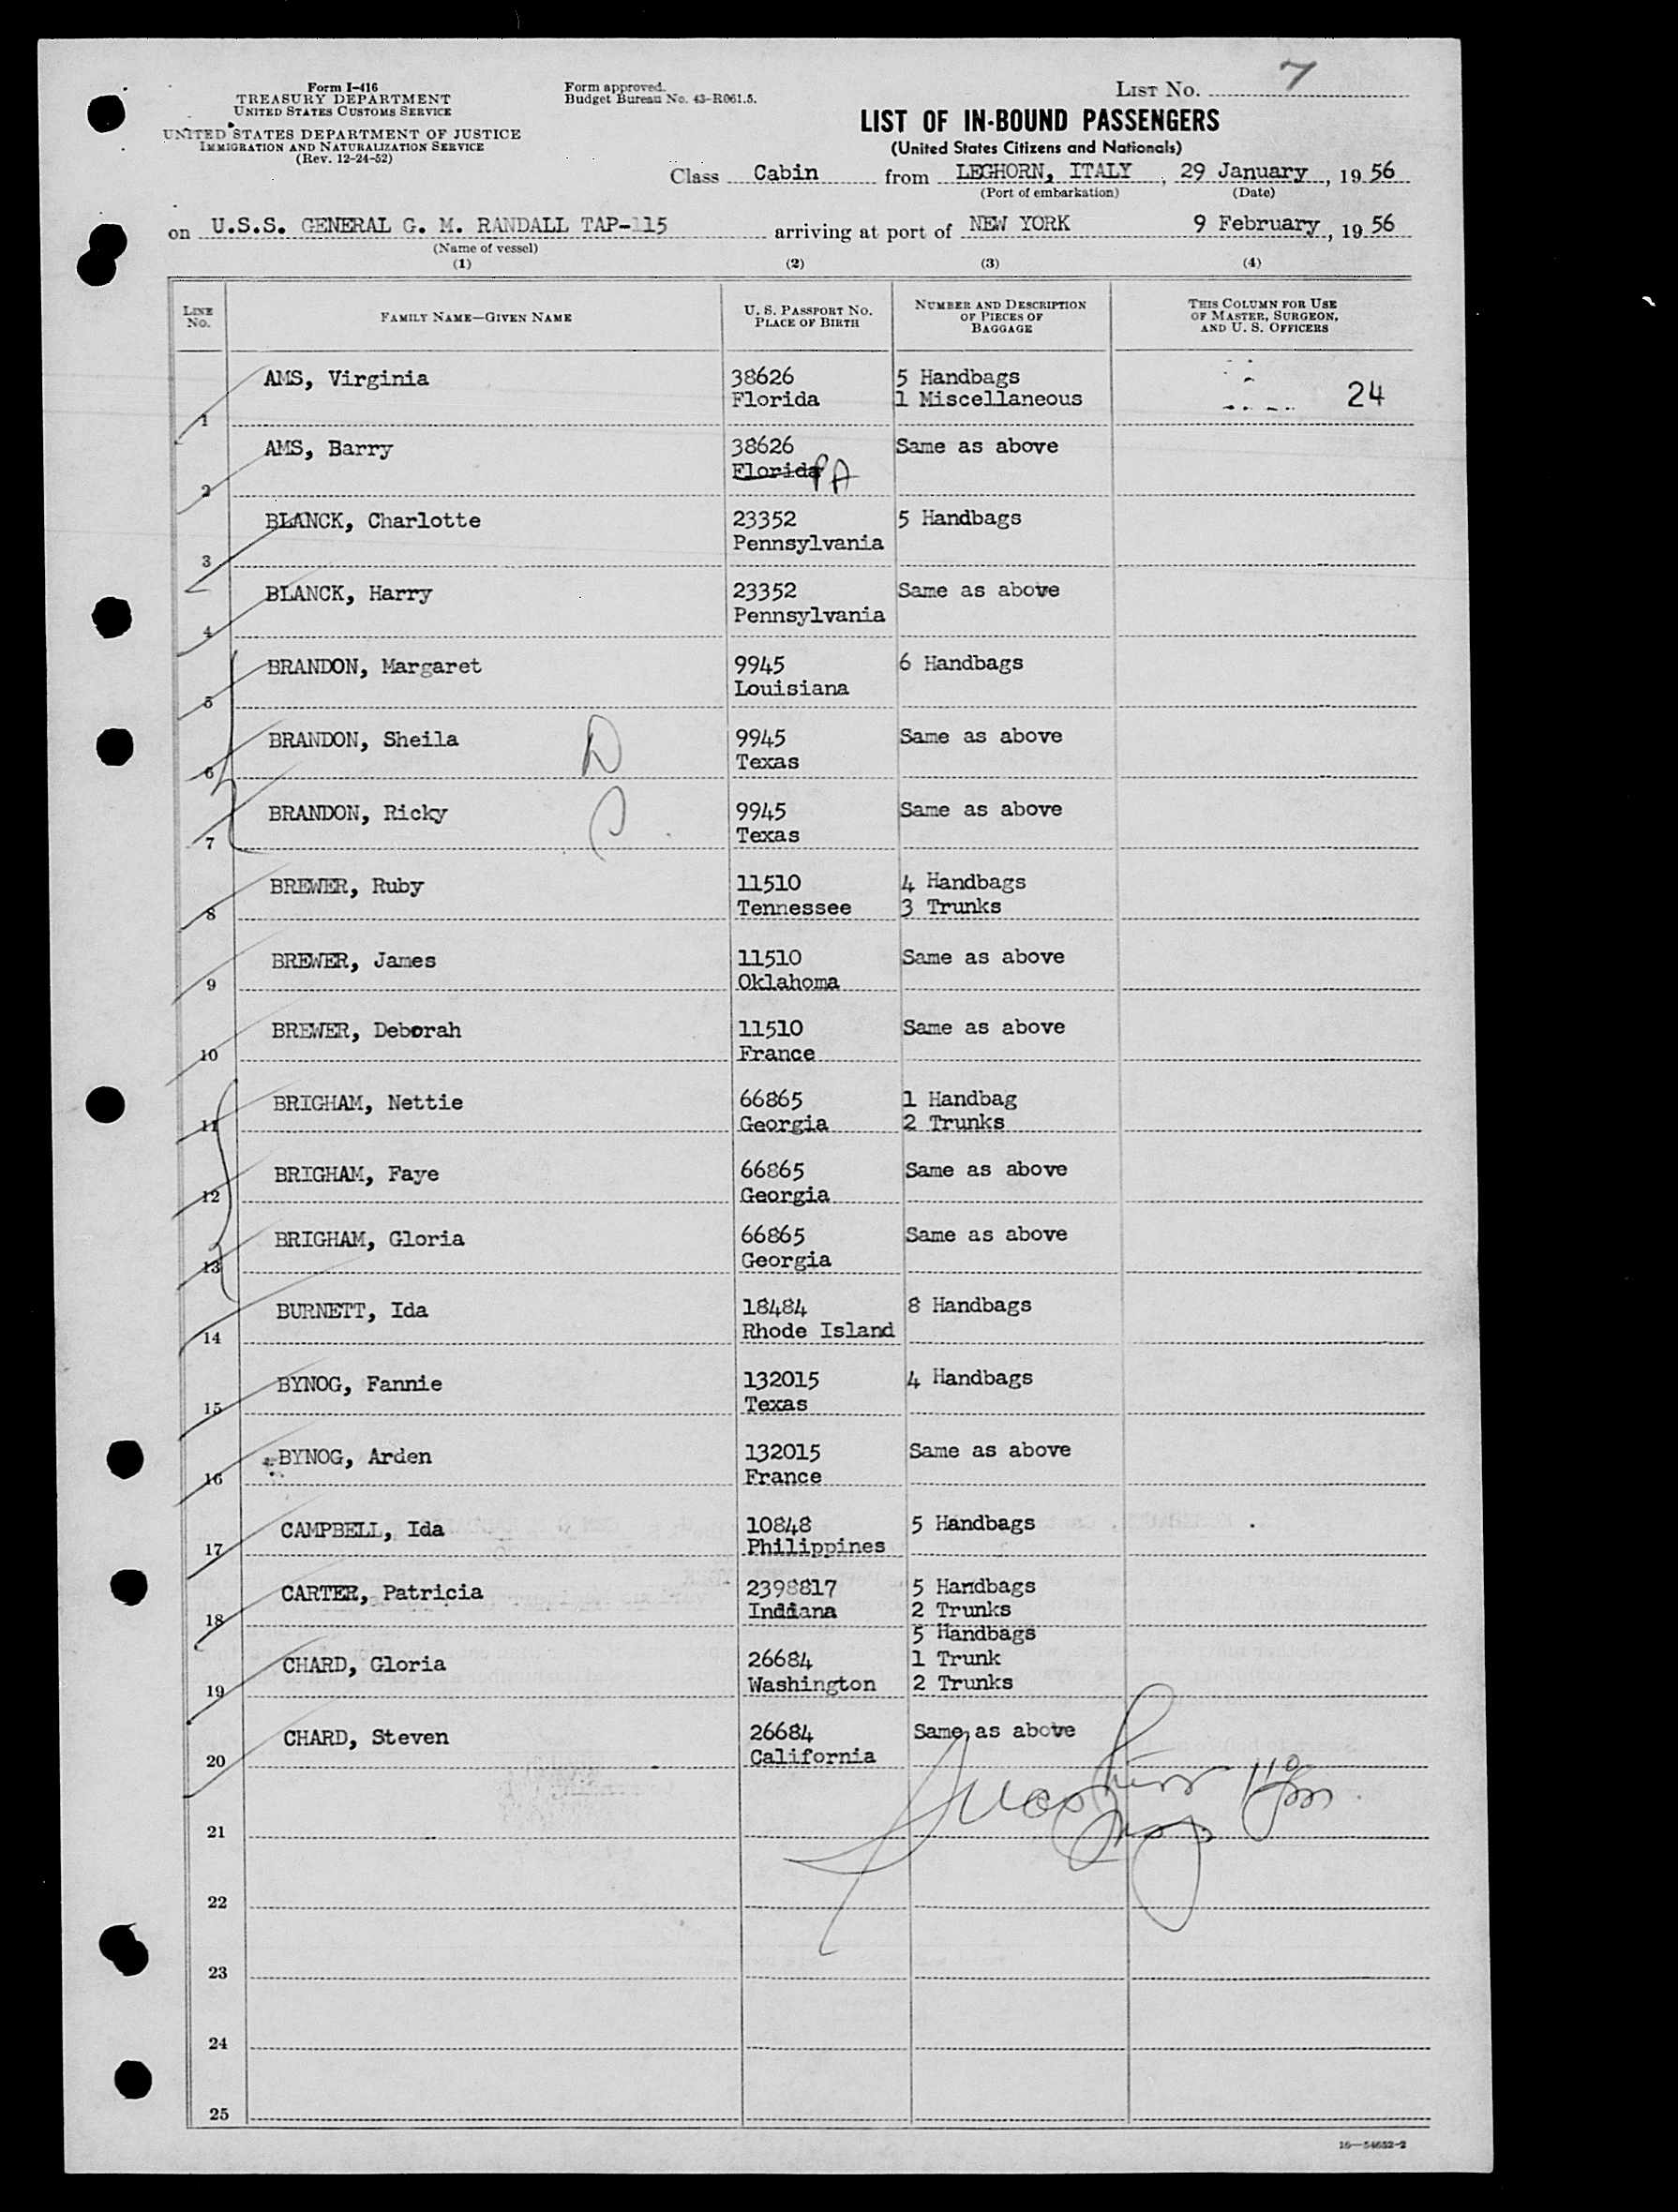 Form I-416
TREASURY DEPARTMENT
UNITED STATES CUSTOMS SERVICE
UNITED STATES DEPARTMENT OF JUSTICE
IMMIGRATION AND NATURALIZATION SERVICE
(Rev. 12-24-52)
Form approved.
Budget Bureau No. 43-R061.5.
LIST NO. 7
LIST OF IN-BOUND PASSENGERS
(United States Citizens and Nationals)
Class Cabin from LEGHORN, ITALY, 29 January, 1956
(Port of embarkation) (Date)
on U.S.S. GENERAL G. M. RANDALL TAP-115 arriving at port of NEW YORK 9 February, 1956
(Name of vessel)
(1) (2) (3) (4)
LINE NO. FAMILY NAME—GIVEN NAME U. S. PASSPORT NO. PLACE OF BIRTH NUMBER AND DESCRIPTION OF PIECES OF BAGGAGE THIS COLUMN FOR USE OF MASTER, SURGEON, AND U. S. OFFICERS
AMS, Virginia 38626 5 Handbags
1 Florida 1 Miscellaneous 24
AMS, Barry 38626 Same as above
2 Florida PA
BLANCK, Charlotte 23352 5 Handbags
3 Pennsylvania
BLANCK, Harry 23352 Same as above
4 Pennsylvania
BRANDON, Margaret 9945 6 Handbags
5 Louisiana
BRANDON, Sheila D 9945 Same as above
6 Texas
BRANDON, Ricky 9945 Same as above
7 Texas
BREWER, Ruby 11510 4 Handbags
8 Tennessee 3 Trunks
BREWER, James 11510 Same as above
9 Oklahoma
BREWER, Deborah 11510 Same as above
10 France
BRIGHAM, Nettie 66865 1 Handbag
11 Georgia 2 Trunks
BRIGHAM, Faye 66865 Same as above
12 Georgia
BRIGHAM, Gloria 66865 Same as above
13 Georgia
BURNETT, Ida 18484 8 Handbags
14 Rhode Island
BYNOG, Fannie 132015 4 Handbags
15 Texas
BYNOG, Arden 132015 Same as above
16 France
CAMPBELL, Ida 10848 5 Handbags
17 Philippines
CARTER, Patricia 2398817 5 Handbags
18 Indiana 2 Trunks
5 Handbags
CHARD, Gloria 26684 1 Trunk
19 Washington 2 Trunks
CHARD, Steven 26684 Same as above
20 California
21
22
23
24
25
16—54652-2